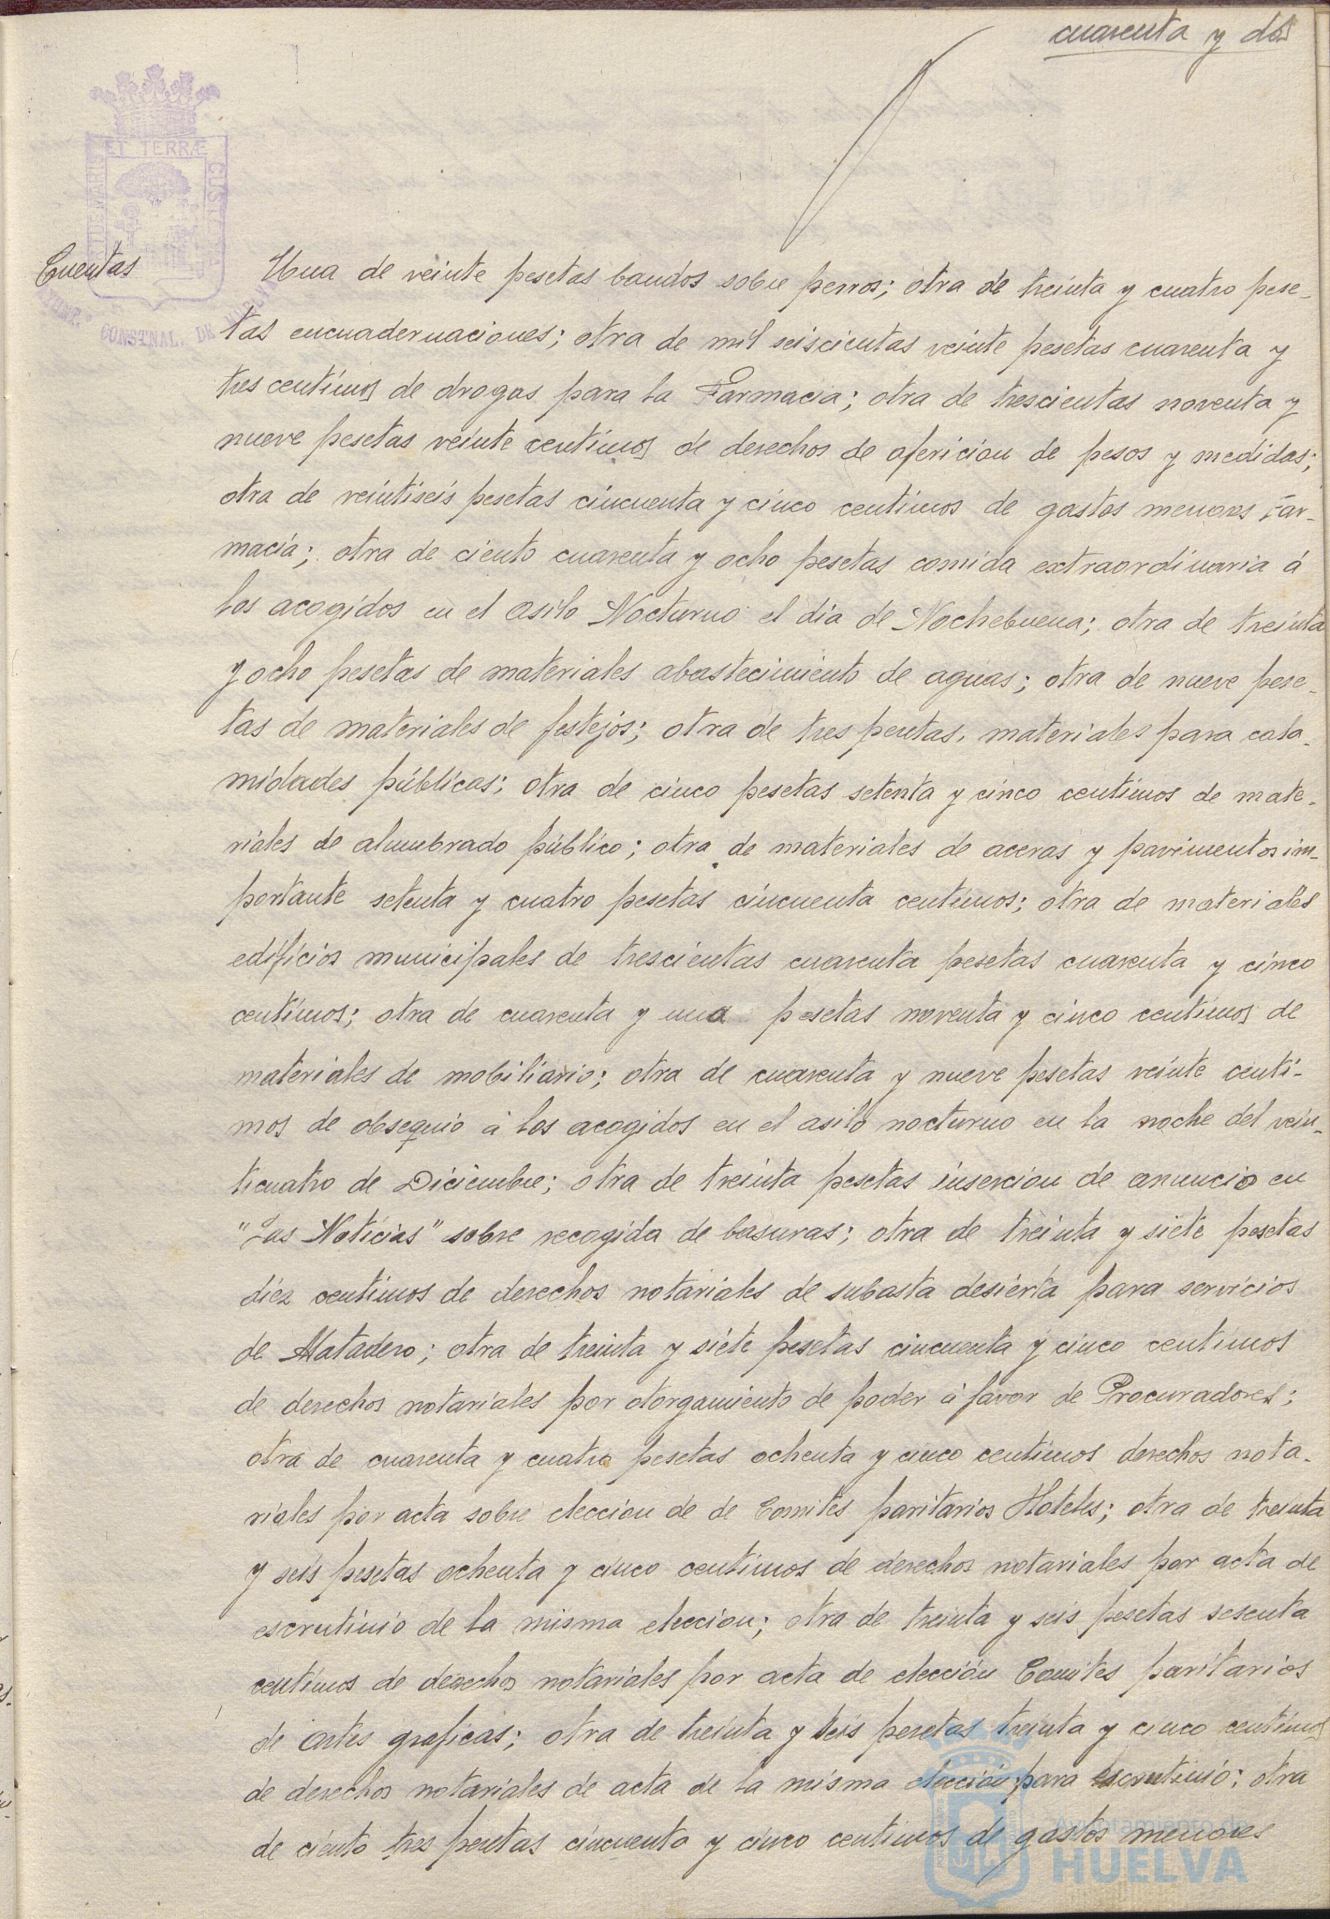 cuarenta y dos
ET TERRÆ
CONSTNAL. DE HUELVA
Cuentas
Una de veinte pesetas bandos sobre perros; otra de treinta y cuatro pese-
tas encuadernaciones; otra de mil seiscientas veinte pesetas cuarenta y
tres centimos de drogas para la Farmacia; otra de trescientas noventa y
nueve pesetas veinte centimos de derechos de afericion de pesos y medidas;
otra de veintiseis pesetas cincuenta y cinco centimos de gastos menores Far-
macia; otra de ciento cuarenta y ocho pesetas comida extraordinaria á
los acogidos en el asilo Nocturno el dia de Nochebuena; otra de treinta
y ocho pesetas de materiales abastecimiento de aguas; otra de nueve pese-
tas de materiales de festejos; otra de tres pesetas, materiales para cala-
midades públicas; otra de cinco pesetas setenta y cinco centimos de mate-
riales de alumbrado público; otra de materiales de aceras y pavimentos im-
portante setenta y cuatro pesetas cincuenta centimos; otra de materiales
edificios municipales de trescientas cuarenta pesetas cuarenta y cinco
centimos; otra de cuarenta y una pesetas noventa y cinco centimos de
materiales de mobiliario; otra de cuarenta y nueve pesetas veinte centi-
mos de obsequio á los acogidos en el asilo nocturno en la noche del vein-
ticuatro de Diciembre; otra de treinta pesetas insercion de anuncio en
"Las Noticias" sobre recogida de basuras; otra de treinta y siete pesetas
diez centimos de derechos notariales de subasta desierta para servicios
de Matadero; otra de treinta y siete pesetas cincuenta y cinco centimos
de derechos notariales por otorgamiento de poder á favor de Procuradores;
otra de cuarenta y cuatro pesetas ochenta y cinco centimos derechos nota-
riales por acta sobre eleccion de de Comites paritarios Hoteles; otra de treinta
y seis pesetas ochenta y cinco centimos de derechos notariales por acta de
escrutinio de la misma eleccion; otra de treinta y seis pesetas sesenta
centimos de derechos notariales por acta de elección Comites paritarios
de Artes graficas; otra de treinta y seis pesetas treinta y cinco centimos
de derechos notariales de acta de la misma elección para escrutinio; otra
de ciento tres pesetas cincuenta y cinco centimos de gastos menores
Ayuntamiento de
HUELVA